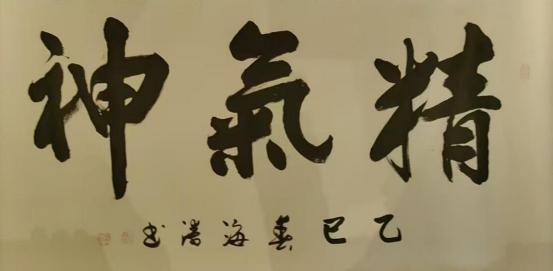 精氣神
乙巳春海濤书